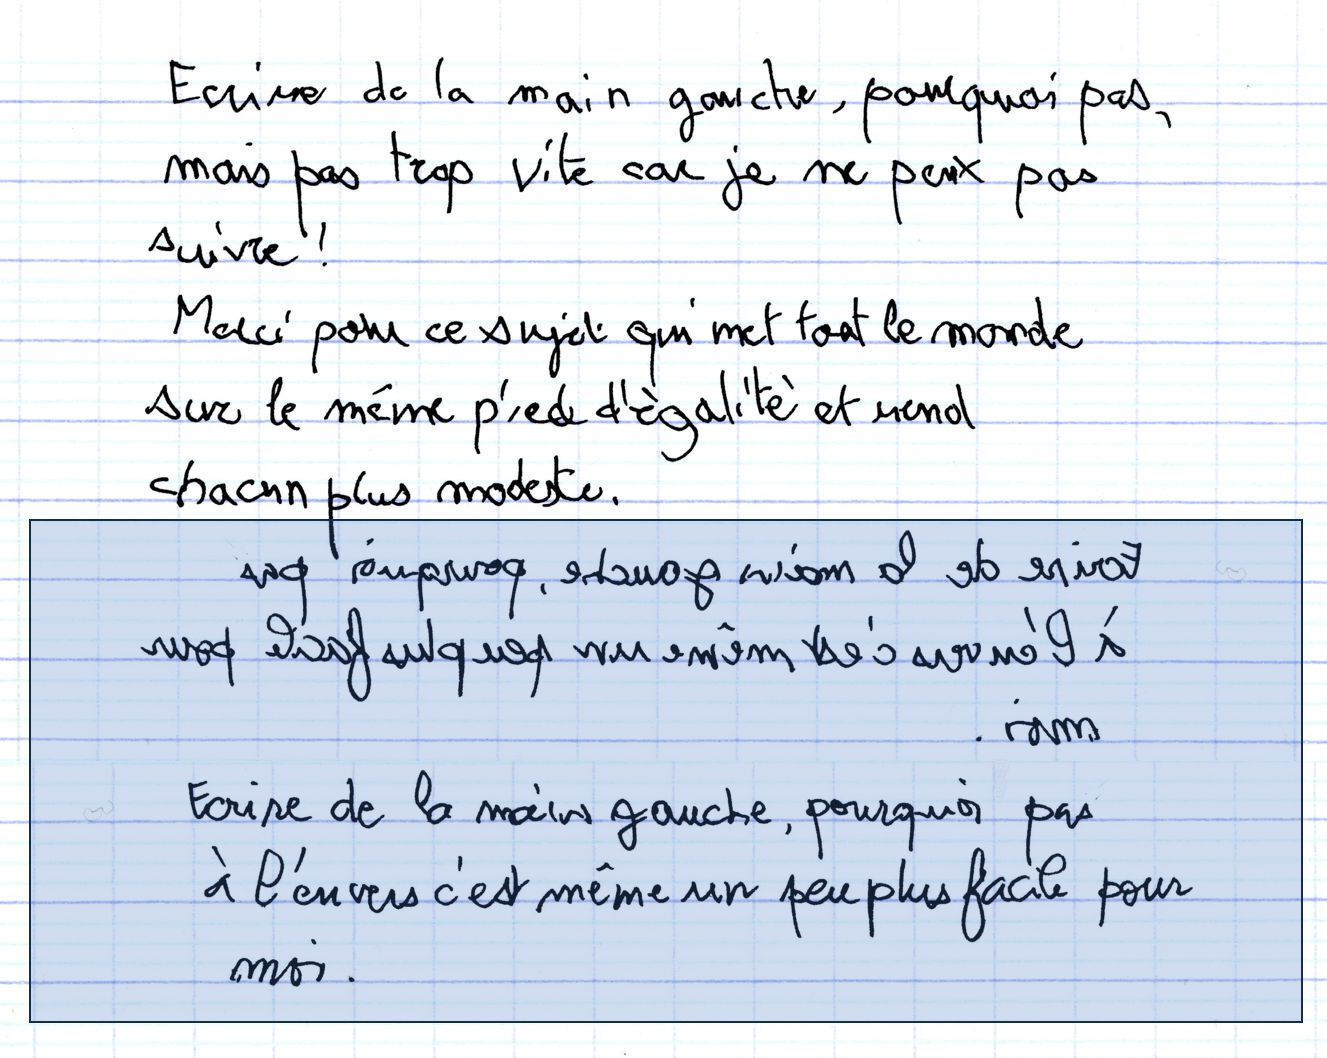 Ecrire de la main gauche, pourquoi pas,
mais pas trop vite car je ne peux pas
suivre !
Merci pour ce sujet qui met tout le monde
sur le même pied d'ègalitè et rend
chacun plus modeste.
Ecrire de la main gauche, pourquoi pas
à l'envers c'est même un peu plus facile pour
moi.
Ecrire de la main gauche, pourquoi pas
à l'envers c'est même un peu plus facile pour
moi.